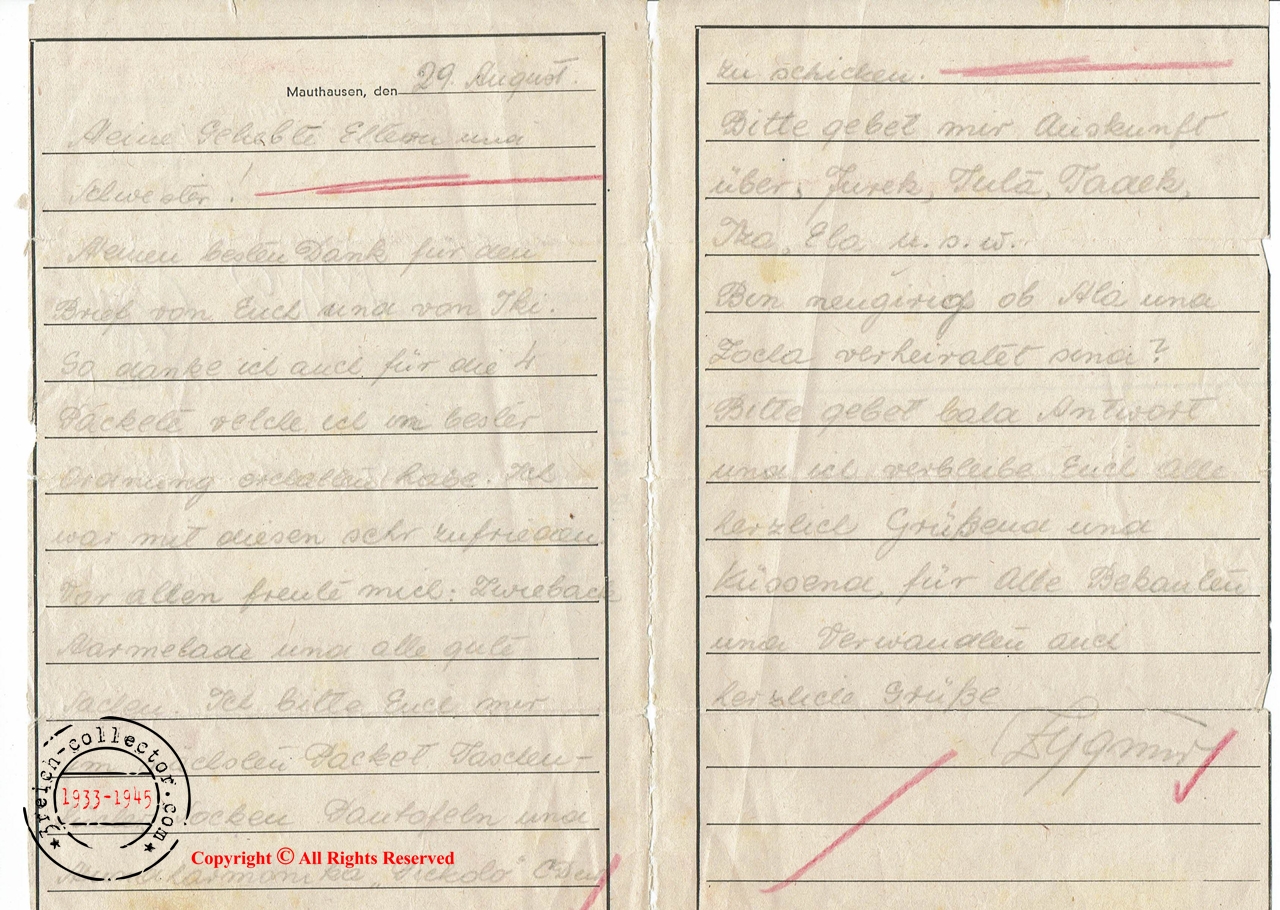 Mauthausen, den 29. August.
Meine Geliebte Eltern und
Schwester!
Meinen besten Dank für den
Brief von Euch und von Iki.
So danke ich auch für die 4
Päckete welche ich in bester
Ordnung erchalten habe. Ich
war mit diesen sehr zufrieden.
Vor allen freute mich: Zwieback
Marmelade und alle gute
Sachen. Ich bitte Euch mir
im nächsten Packet Taschen-
Socken Pantofeln und
"Pickolo" C Dur
zu schicken.
Bitte gebet mir Auskunft
über, Jurek, Tadek,
Iza, Ela u. s. w.
Bin neugirig ob Ala und
Zocha verheiratet sind?
Bitte gebet bald Antwort
und ich verbleibe Euch alle
herzlich Grüßend und
Küssend, für Alle Bekanten
und Verwandten auch
herzliche Grüße
Zygmunt
3reich-collector.com
1933-1945
Copyright © All Rights Reserved